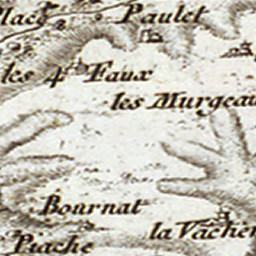 Paulet
les 4 Faux
les Murgeau
Bournat
la Vacher
Piache